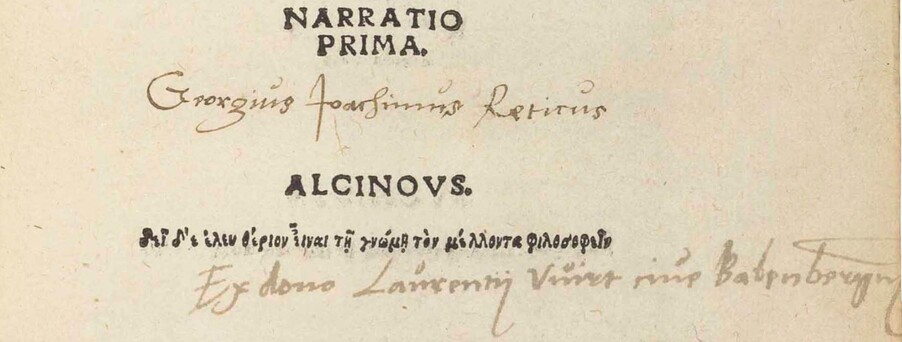 NARRATIO
PRIMA.
Georgius Joachimus Reticus
ALCINOVS.
δεῖ δ'ε ἐλευθέριον εἶναι τῇ γνώμῃ τὸν μέλλοντα φιλοσοφεῖν
Ex dono Laurentij cive